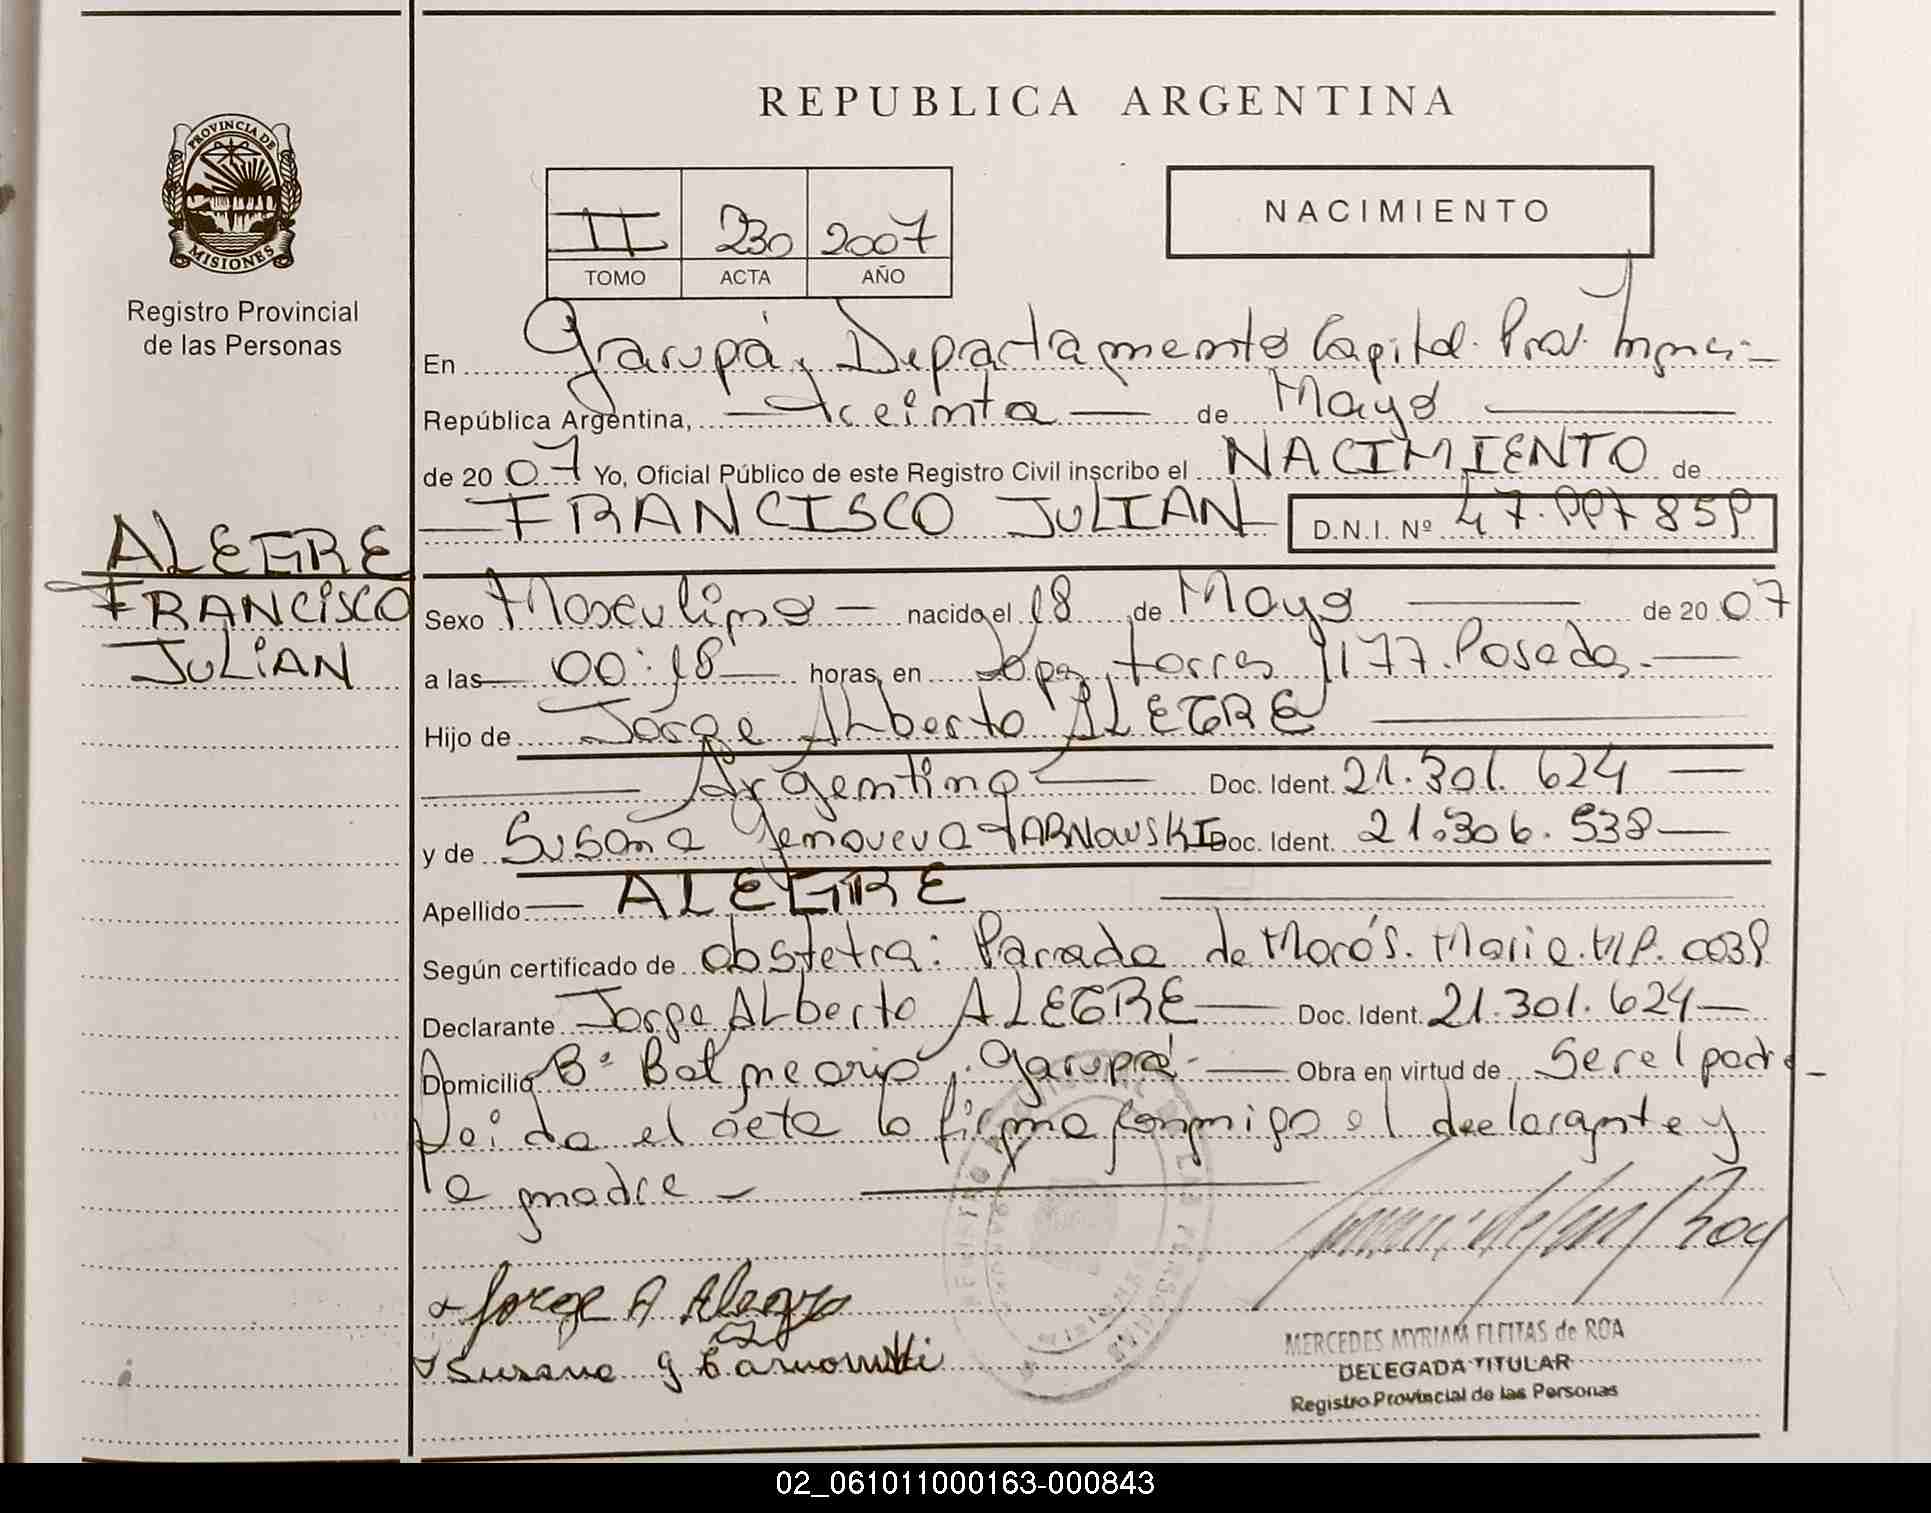 PROVINCIA DE
MISIONES
Registro Provincial
de las Personas
ALEGRE
FRANCISCO
JULIAN
REPUBLICA ARGENTINA
II 230 2007
TOMO ACTA AÑO
NACIMIENTO
En Garupá, Departamento Capital. Prov. Mnes.
República Argentina, treinta de Mayo
de 2007 Yo, Oficial Público de este Registro Civil inscribo el NACIMIENTO de
FRANCISCO JULIAN D.N.I. Nº 47.997859
Sexo Masculino nacido el 18 de Mayo de 2007
a las 00:18 horas, en Lopez torres 1177. Posadas.
Hijo de Jorge Alberto ALEGRE
Argentino Doc. Ident. 21.301.624
y de Susana Genoveva TARNOWSKI Doc. Ident. 21.306.538
Apellido ALEGRE
Según certificado de obstetra: Parada de Morós. Maria. M.P. 0039
Declarante Jorge Alberto ALEGRE Doc. Ident. 21.301.624
Domicilio Bº Balneario. Garupá. Obra en virtud de Ser el padre
Leida el acta la firma conmigo el declarante y
la madre
Jorge A Alegre
Susana G Tarnowski
MERCEDES MYRIAM FLEITAS de ROA
DELEGADA TITULAR
Registro Provincial de las Personas
02_061011000163-000843